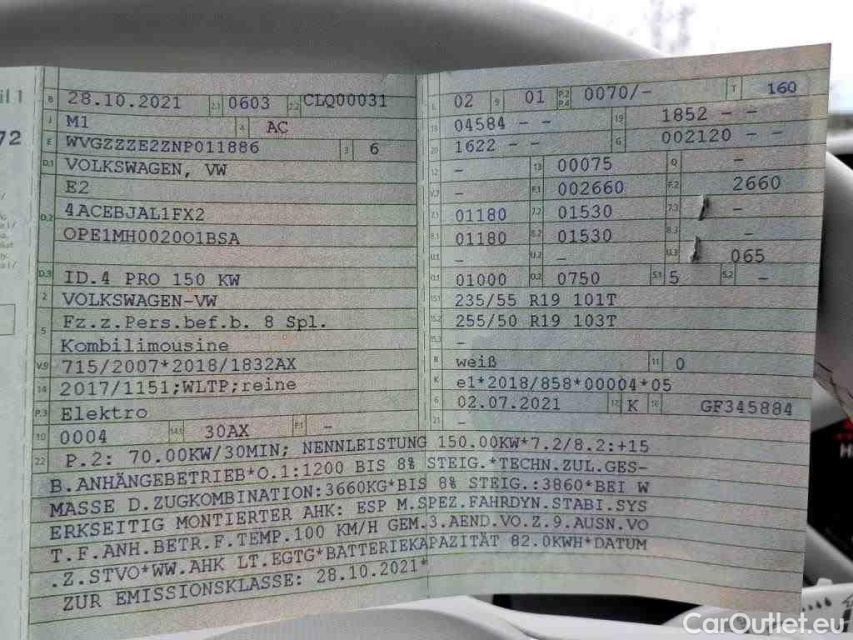 il I
72
B 28.10.2021 2.1 0603 2.2 CLQ00031
J M1 4 AC
E WVGZZZE2ZNP011886 3 6
D.1 VOLKSWAGEN, VW
E2
D.2 4ACEBJAL1FX2
OPE1MH002001BSA
D.3 ID.4 PRO 150 KW
2 VOLKSWAGEN-VW
5 Fz.z.Pers.bef.b. 8 Spl.
Kombilimousine
V.9 715/2007*2018/1832AX
14 2017/1151;WLTP;reine
P.3 Elektro
10 0004 14.1 30AX P.1 -
L 02 9 01 P.2 P.4 0070/- T 160
18 04584 - - 19 1852 - -
20 1622 - - G 002120 - -
12 - 13 00075 Q -
- F.1 002660 F.2 2660
7.1 01180 7.2 01530 7.3 -
8.1 01180 8.2 01530 8.3 -
U.1 - - U.3 065
O.1 01000 O.2 0750 S.1 5 S.2 -
15.1 235/55 R19 101T
15.2 255/50 R19 103T
-
R weiß 11 0
K e1*2018/858*00004*05
6 02.07.2021 17 K 16 GF345884
21 -
22 P.2: 70.00KW/30MIN; NENNLEISTUNG 150.00KW*7.2/8.2:+15
B.ANHÄNGEBETRIEB*O.1:1200 BIS 8% STEIG.*TECHN.ZUL.GES-
MASSE D.ZUGKOMBINATION:3660KG*BIS 8% STEIG.:3860*BEI W
ERKSEITIG MONTIERTER AHK: ESP M.SPEZ.FAHRDYN.STABI.SYS
T.F.ANH.BETR.F.TEMP.100 KM/H GEM.3.AEND.VO.Z.9.AUSN.VO
.Z.STVO*WW.AHK LT.EGTG*BATTERIEKAPAZITÄT 82.0KWH*DATUM
ZUR EMISSIONSKLASSE: 28.10.2021*
CarOutlet.eu